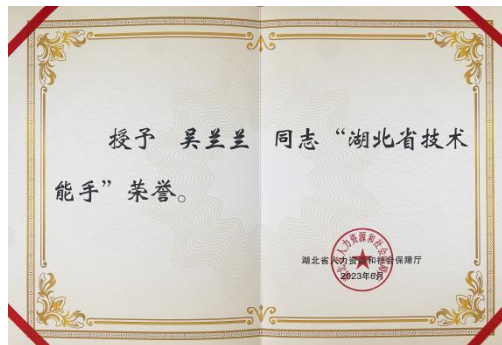 授予 吴兰兰 同志“湖北省技术
能手”荣誉。
湖北省人力资源和社会保障厅
2023年6月